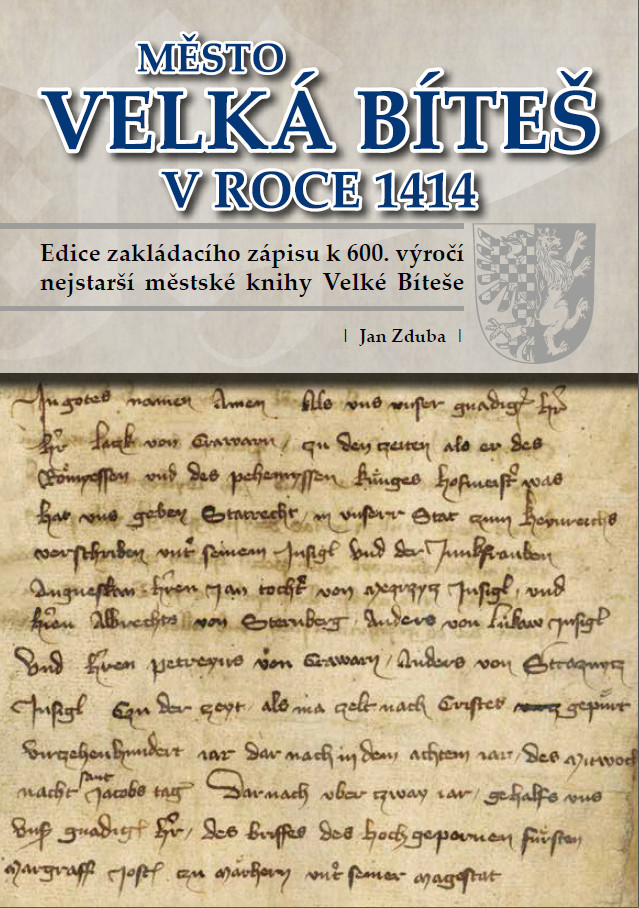 MĚSTO
VELKÁ BÍTEŠ
V ROCE 1414
Edice zakládacího zápisu k 600. výročí
nejstarší městské knihy Velké Bíteše
| Jan Zduba |
In gotes namen Amen Als uns unser gnadigr hr
hr laczk von Crawarn, czu den czeiten als er des
Römyessen vnd des pehemyssen kuͤnges hofmeistr was
hat vns geben Statrecht, in vnserr Stat zum heynreichs
verschriben vntr seinem Insigl vnd der Junkfrauben
hren Jan tochtr von Megrzycz Insigl, vnd
hren Albrechts von Sternberg, Anders von lukaw Insigl
Vnd hren petreyns von Crawarn, Anders von Straznycz
Insigl Czu der czeyt, als ma czelt nach Cristes gepuͤrt
virczehenhundert iar dar nach in dem achtem iar, des Mitwoch
nacht sant Jacobs tag Dar nach vber czway iar, gehalfs vns
vnsr gnadigr hr, des briffes des hochgepornen fuͤrsten
Margraff Jostl czu Marhern vntr seiner magestat